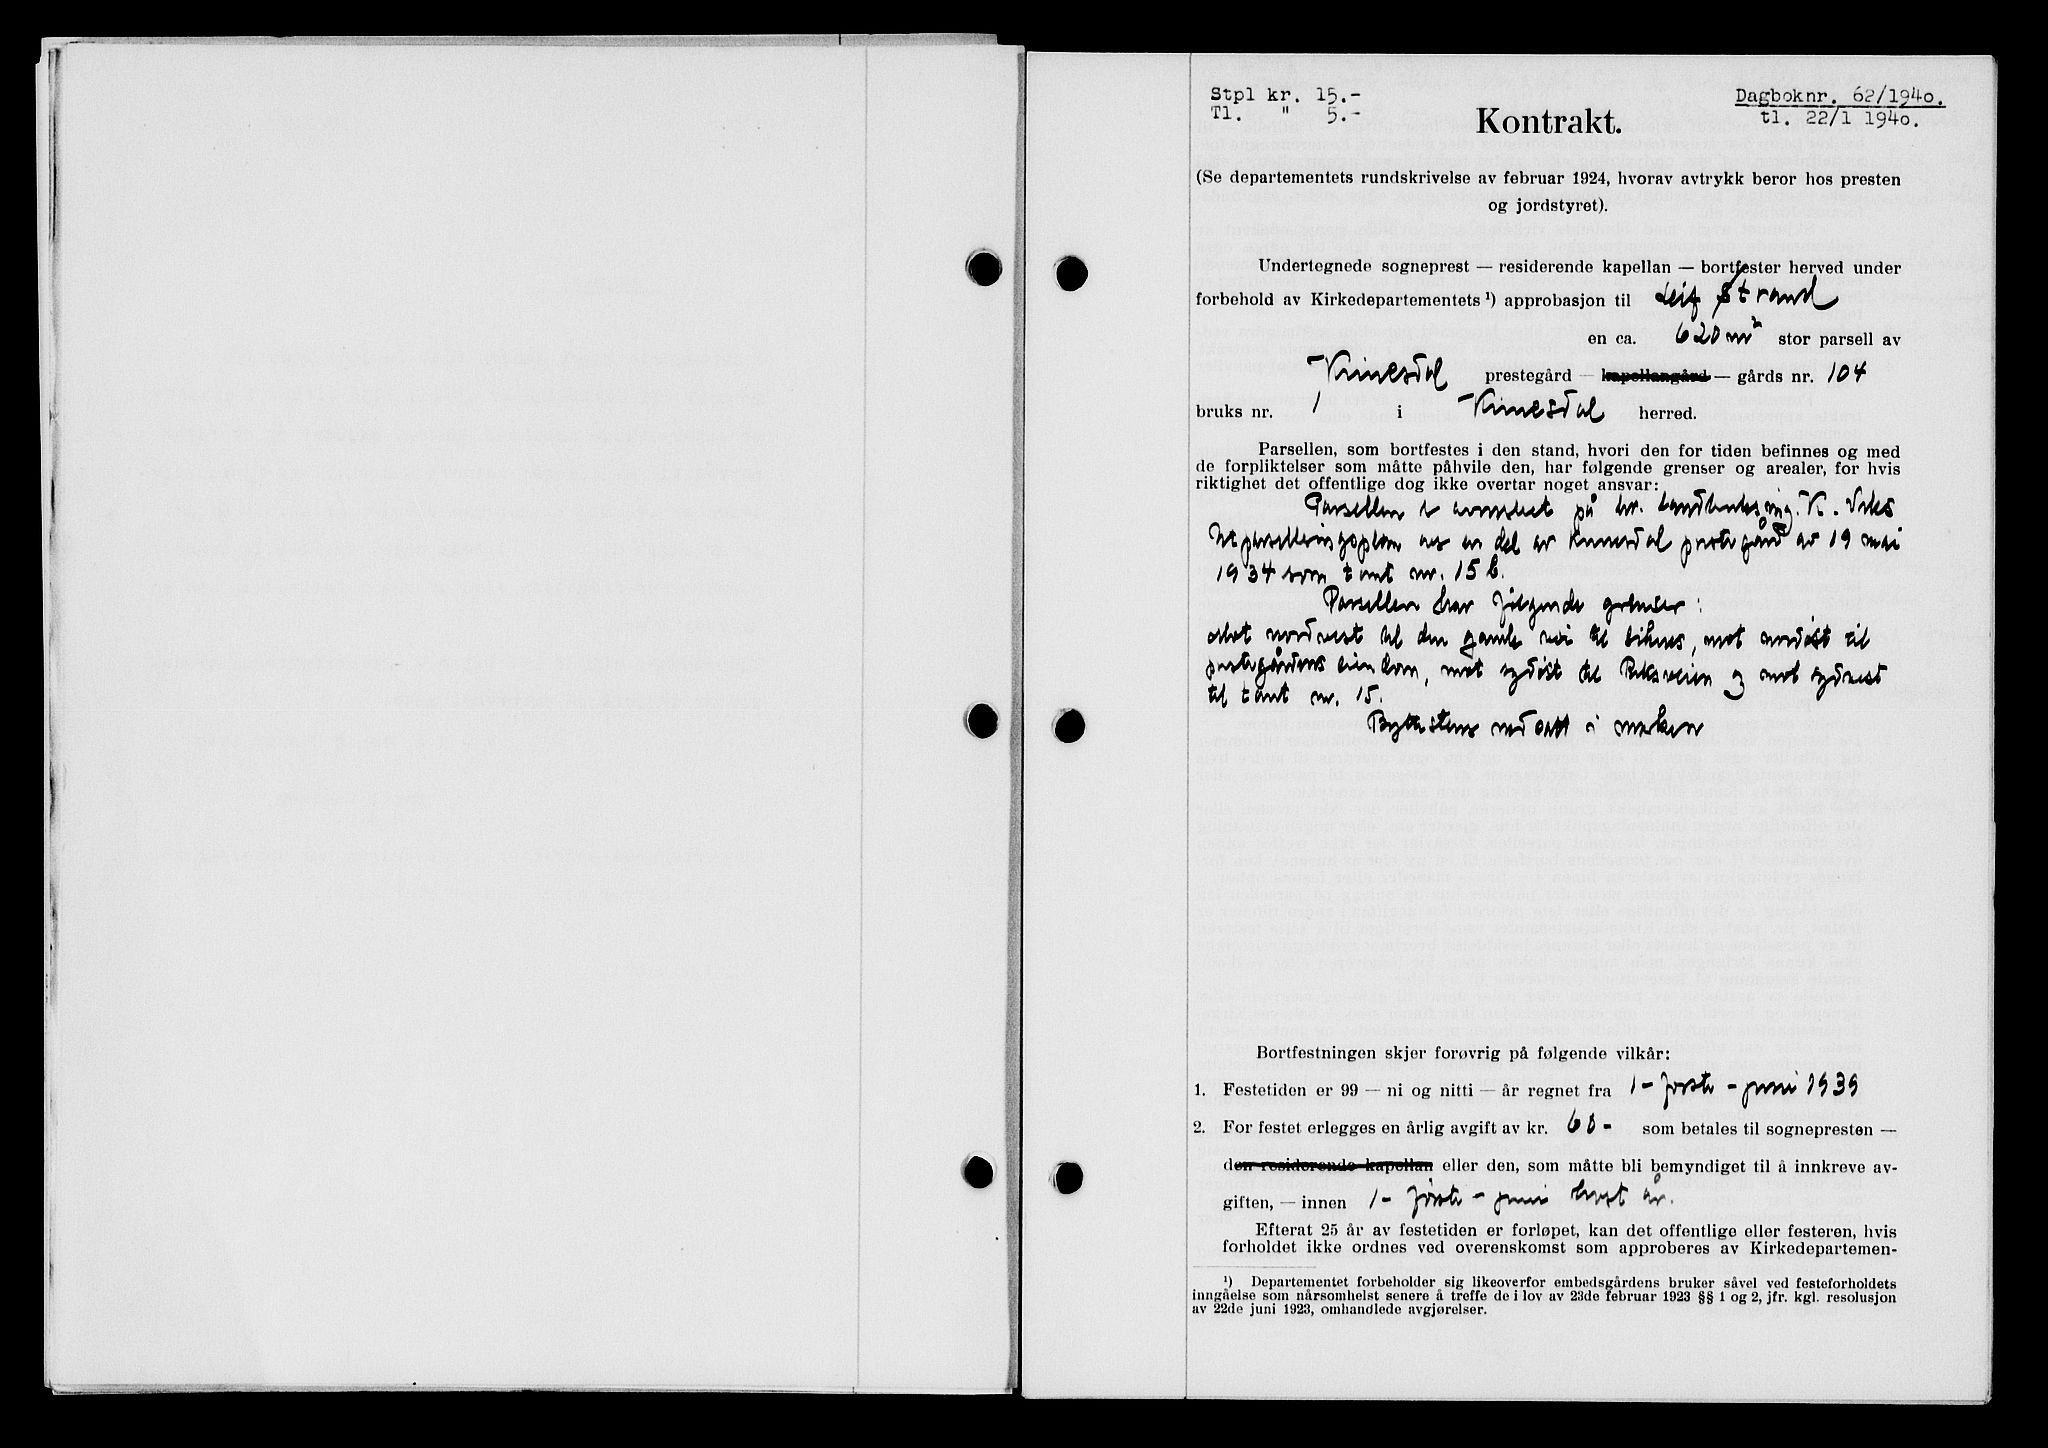 Stpl kr. 15.-
Tl. " 5.-
Dagboknr. 62/1940.
tl. 22/1 1940.
Kontrakt.
(Se departementets rundskrivelse av februar 1924, hvorav avtrykk beror hos presten
og jordstyret).
Undertegnede sogneprest — residerende kapellan — bortfester herved under
forbehold av Kirkedepartementets ¹) approbasjon til Leif Strand
en ca. 620 m² stor parsell av
Kvinesdal prestegård — kapellangård — gårds nr. 104
bruks nr. 1 i Kvinesdal herred.
Parsellen, som bortfestes i den stand, hvori den for tiden befinnes og med
de forpliktelser som måtte påhvile den, har følgende grenser og arealer, for hvis
riktighet det offentlige dog ikke overtar noget ansvar:
Parsellen er avmerket på hr. landbruksing. K.
utparselleringsplan av en del av Kvinesdal prestegård av 19 mai
1934 som tomt nr. 15 b.
Parsellen har følgende grenser:
mot nordvest til den gamle vei til, mot nordøst til
prestegårdens eiendom, mot sydøst til Riksveien og mot sydvest
til tomt nr. 15.
Byttestene nedsatt i marken
Bortfestningen skjer forøvrig på følgende vilkår:
1. Festetiden er 99 — ni og nitti — år regnet fra 1- første - juni 1939
2. For festet erlegges en årlig avgift av kr. 60- som betales til sognepresten —
den residerende kapellan eller den, som måtte bli bemyndiget til å innkreve av-
giften, — innen 1- første - juni hvert år.
Efterat 25 år av festetiden er forløpet, kan det offentlige eller festeren, hvis
forholdet ikke ordnes ved overenskomst som approberes av Kirkedepartemen-
¹) Departementet forbeholder sig likeoverfor embedsgårdens bruker såvel ved festeforholdets
inngåelse som nårsomhelst senere å treffe de i lov av 23de februar 1923 §§ 1 og 2, jfr. kgl. resolusjon
av 22de juni 1923, omhandlede avgjørelser.